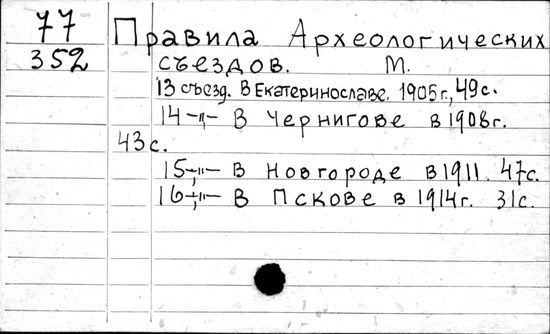 77 Правила Археологических
352 съездов. М.
13 съезд. В Екатеринославе. 1905г., 49с.
14 -„- В Чернигове в 1908г.
43с.
15 -„- В Новгороде в 1911. 47с.
16 -„- В Пскове в 1914г. 31с.